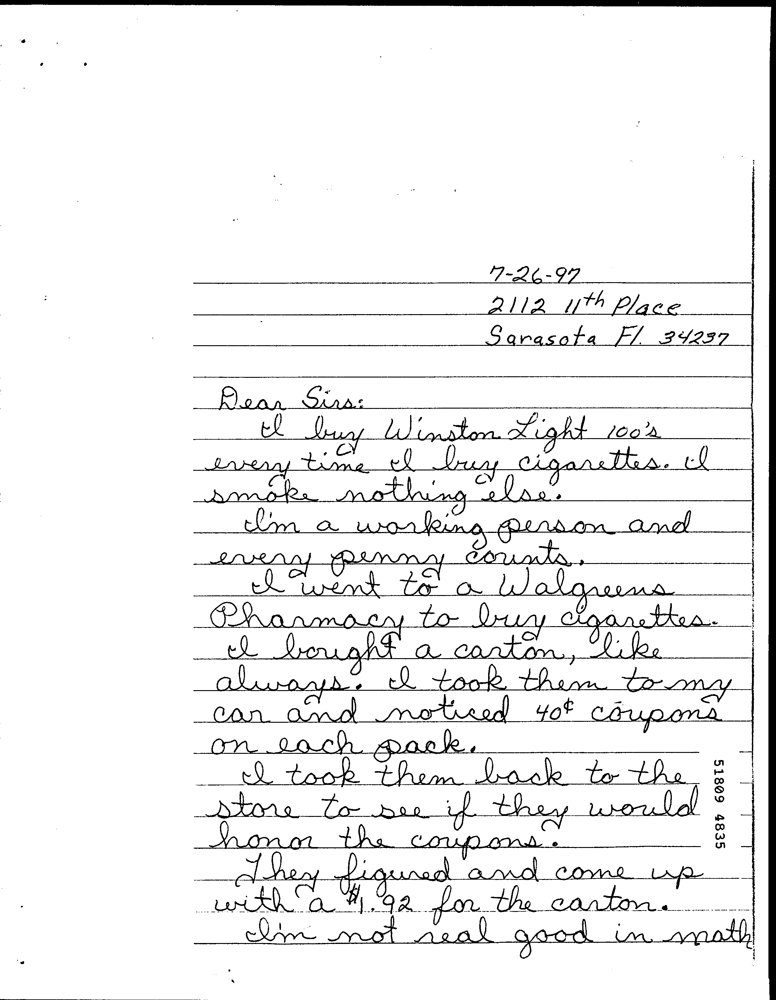 7-26-97
2112 11th Place
Sarasota Fl. 34237
Dear Sirs:
I buy Winston Light 100's
every time I buy cigarettes. I
smoke nothing else.
I'm a working person and
every penny counts.
I went to a Walgreens
Pharmacy to buy cigarettes.
I bought a carton, like
always. I took them to my
car and noticed 40¢ coupons
on each pack.
I took them back to the
store to see if they would
honor the coupons.
They figured and come up
with a $1.92 for the carton.
I'm not real good in math
51809 4835